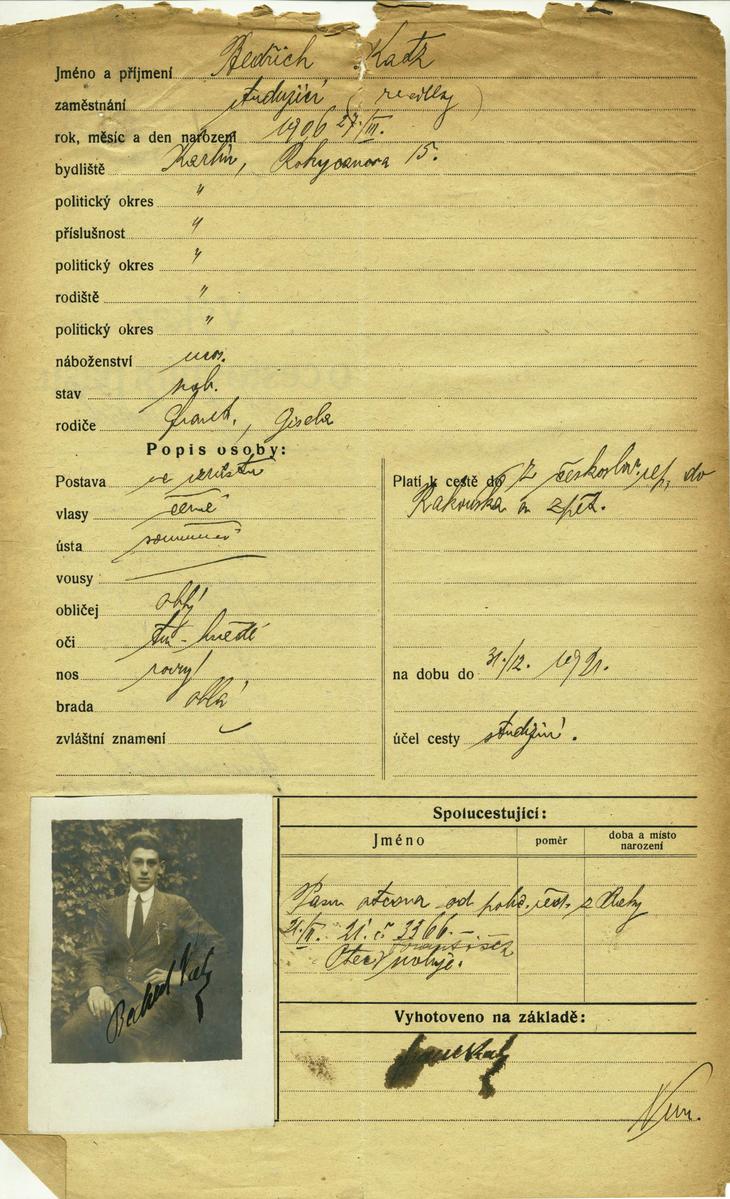 Jméno a příjmení Bedřich Katz
zaměstnání studující
rok, měsíc a den narození 1906 27/III.
bydliště Karlín, Rokycanova 15.
politický okres "
příslušnost "
politický okres "
rodiště "
politický okres "
náboženství mos.
stav svob.
rodiče Frant., Gisela
Popis osoby:
Postava ve vzrůstu
vlasy černé
ústa souměrná
vousy
obličej oblý
oči tm-hnědé
nos rovný
brada oblá
zvláštní znamení
Platí k cestě do z českoslov. rep. do
Rakouska a zpět.
na dobu do 31./12. 1921.
účel cesty studijní.
Spolucestující:
Jméno poměr doba a místo narození
Pasu otcova od
21. č. 3366.-
Otec František
Vyhotoveno na základě: